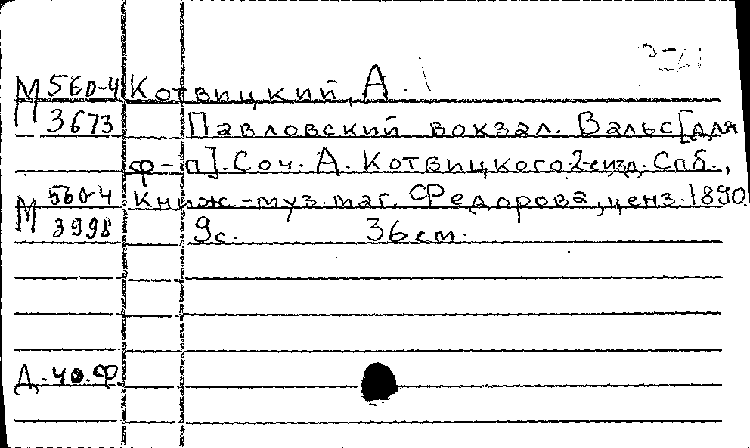 М 560-4 Котвицкий, А.
3673 Павловский вокзал. Вальс [для
ф-п]. Соч. А. Котвицкого 2-е изд. Спб.,
М 560-4 Книж-муз маг. Федорова, ценз. 1890.
3998 9с. 36 cm.
Д-40.Ф